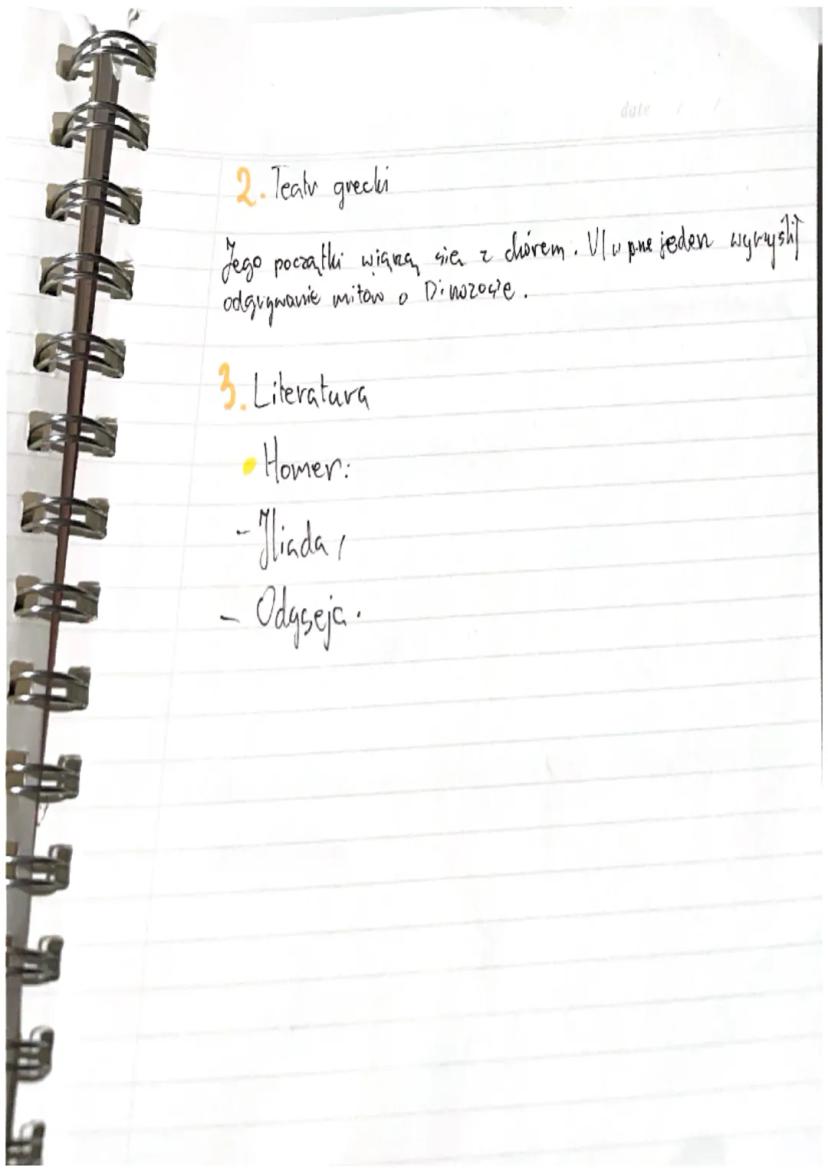 date / /
2. Teatr grecki
Jego początki wiążą się z chórem. jeden wymyślił
odgrywanie mitów o Dinozosie.
3. Literatura
• Homer:
- Iliada,
- Odyseja.